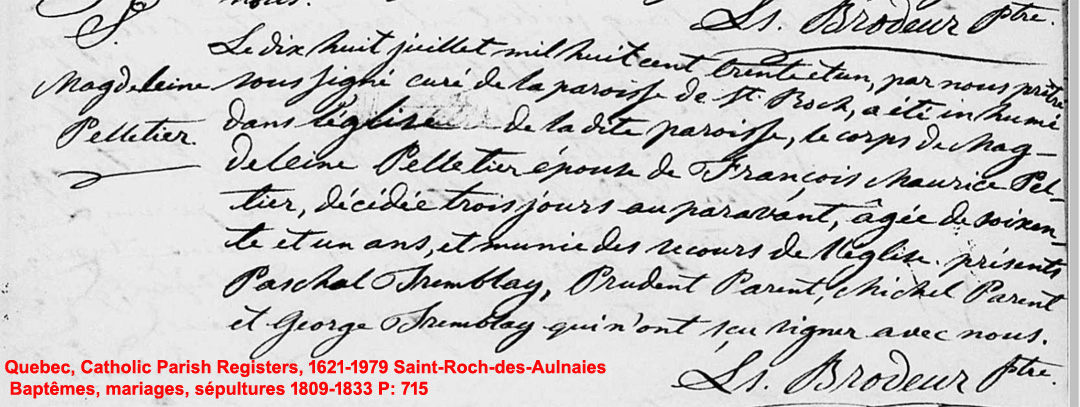 nous.
Ls. Brodeur ptre.
S.
Magdeleine
Pelletier.
Le dix huit juillet mil huit cent trente et un, par nous prêtre
sous signé curé de la paroisse de St. Roch, a été inhumé
dans l'église de la dite paroisse, le corps de Mag-
deleine Pelletier épouse de François Maurice Pel-
tier, décédée trois jours auparavant, âgée de soixan-
te et un ans, et munie des secours de l'église. présents
Paschal Tremblay, Prudent Parent, Michel Parent
et George Tremblay qui n'ont sçu signer avec nous.
Ls. Brodeur ptre.
Quebec, Catholic Parish Registers, 1621-1979 Saint-Roch-des-Aulnaies
Baptêmes, mariages, sépultures 1809-1833 P: 715